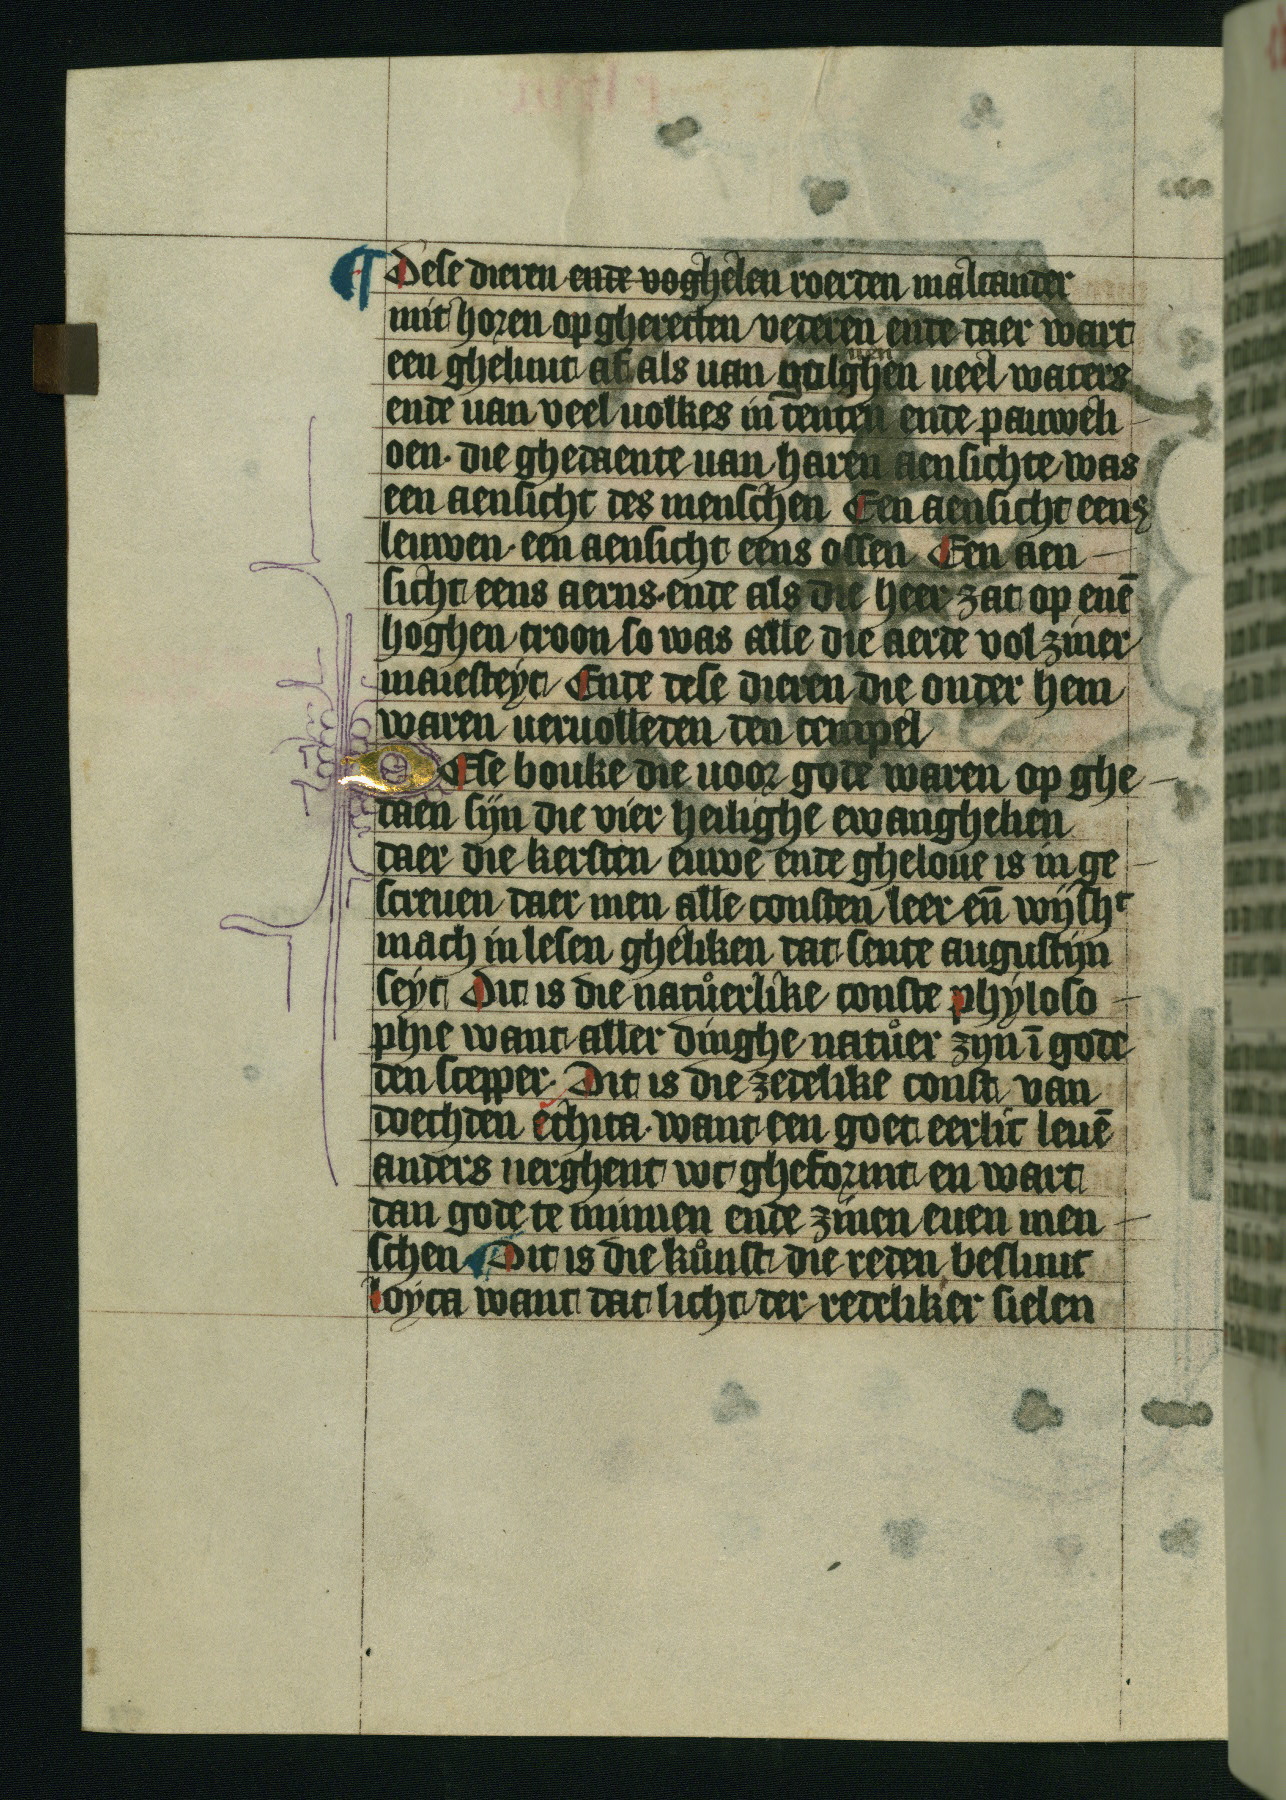 ¶ Dese dieren ende voghelen roerden malcander
mit horen op gherechten vederen ende daer wart
een gheluut af als uan gulghen ueel waters
ende uan veel uolkes in tenten ende pauweli
oen. die ghedaente uan haren aensichte was
een aensicht des menschen Een aensicht eens
leuwen. een aensicht eens ossen Een aen
sicht eens aerns. ende als die heer zat op enē
hoghen troon so was alle die aerde vol zinre
maiesteyt Ende dese dieren die onder hem
waren ueruolleden den tempel
DEse bouke die uoor gode waren op ghe
daen sijn die vier heilighe ewanghelien
daer die kersten euwe ende gheloue is in ge
screuen daer men alle consten leer eñ wijsht
mach in lesen gheliken dat sente augustijn
seyt Dit is die natůerlike conste phyloso
phie want aller dinghe natůer zyn ī gode
den scepper. Dit is die zedelike const van
doechden echita. want een goet eerlic leuē
anders nerghent wt gheformt en wart
dan gode te minnen ende zinen euen men
schen ¶ Dit is die kůnst die reden besluut
loyca want dat licht der redeliker sielen